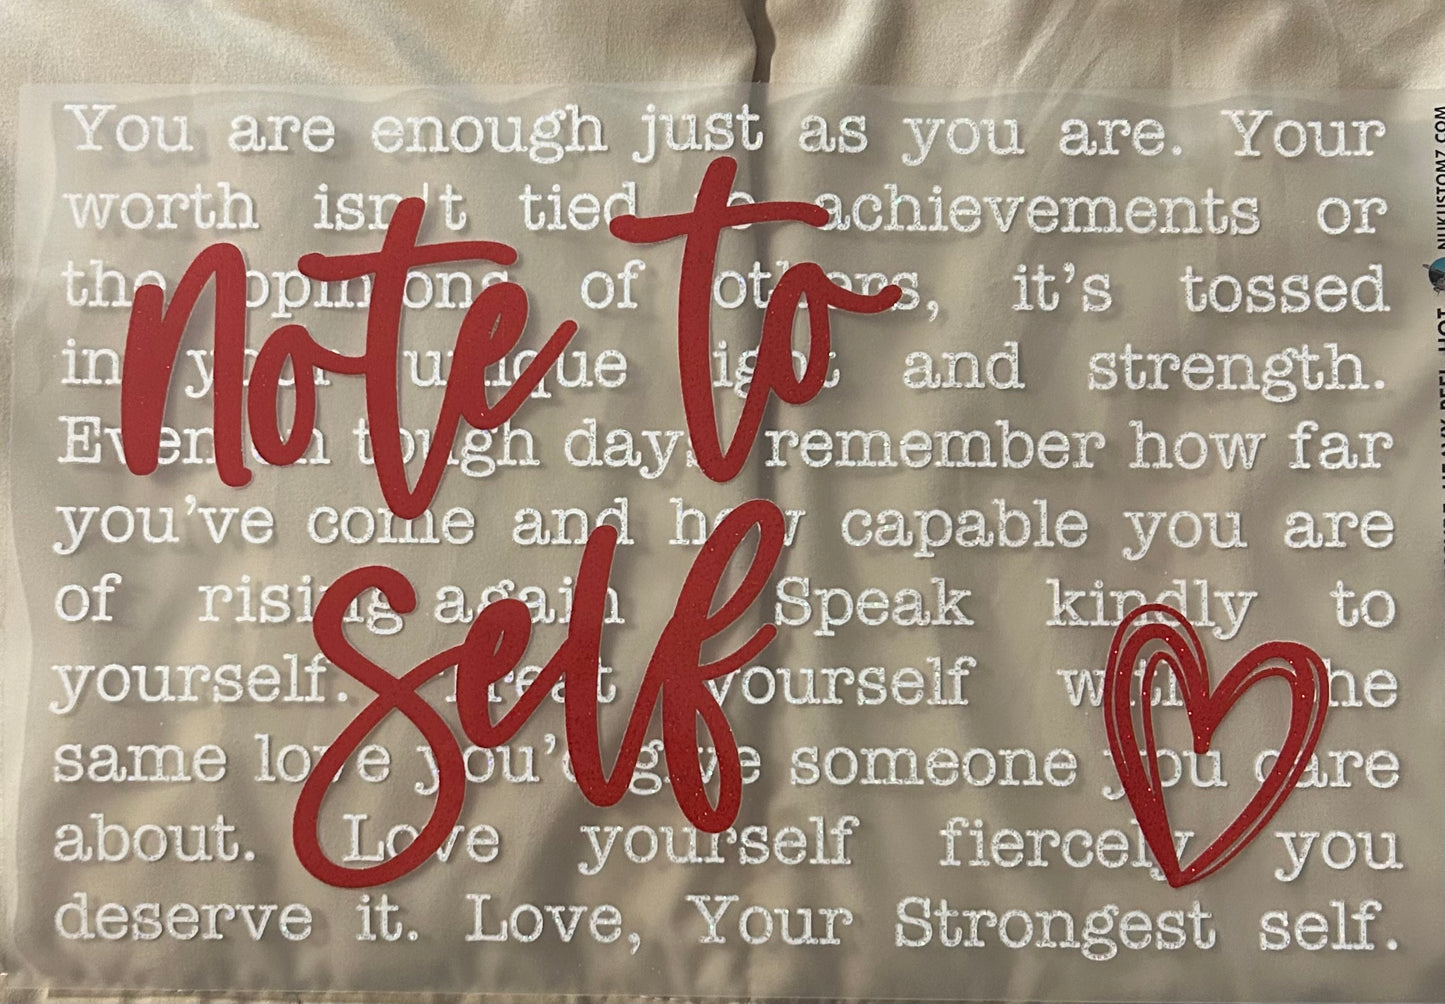 You are enough just as you are. Your
worth isn't tied to achievements or
the opinions of others, it's tossed
in your unique light and strength.
Even on tough days remember how far
you've come and how capable you are
of rising again Speak kindly to
yourself. Treat yourself with the
same love you'd give someone you care
about. Love yourself fiercely you
deserve it. Love, Your Strongest self.
note to
self
PEEL HOT NUKUSTOMZ.COM